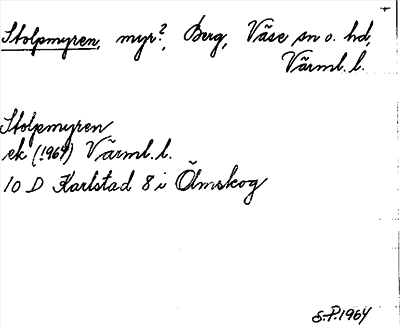 Stolpmyren, myr?, Berg, Väse sn o. hd,
Värml. l.
Stolpmyren
ek (1969) Värml. l.
10 D Karlstad 8 i Ölmskog
S.P. 1964